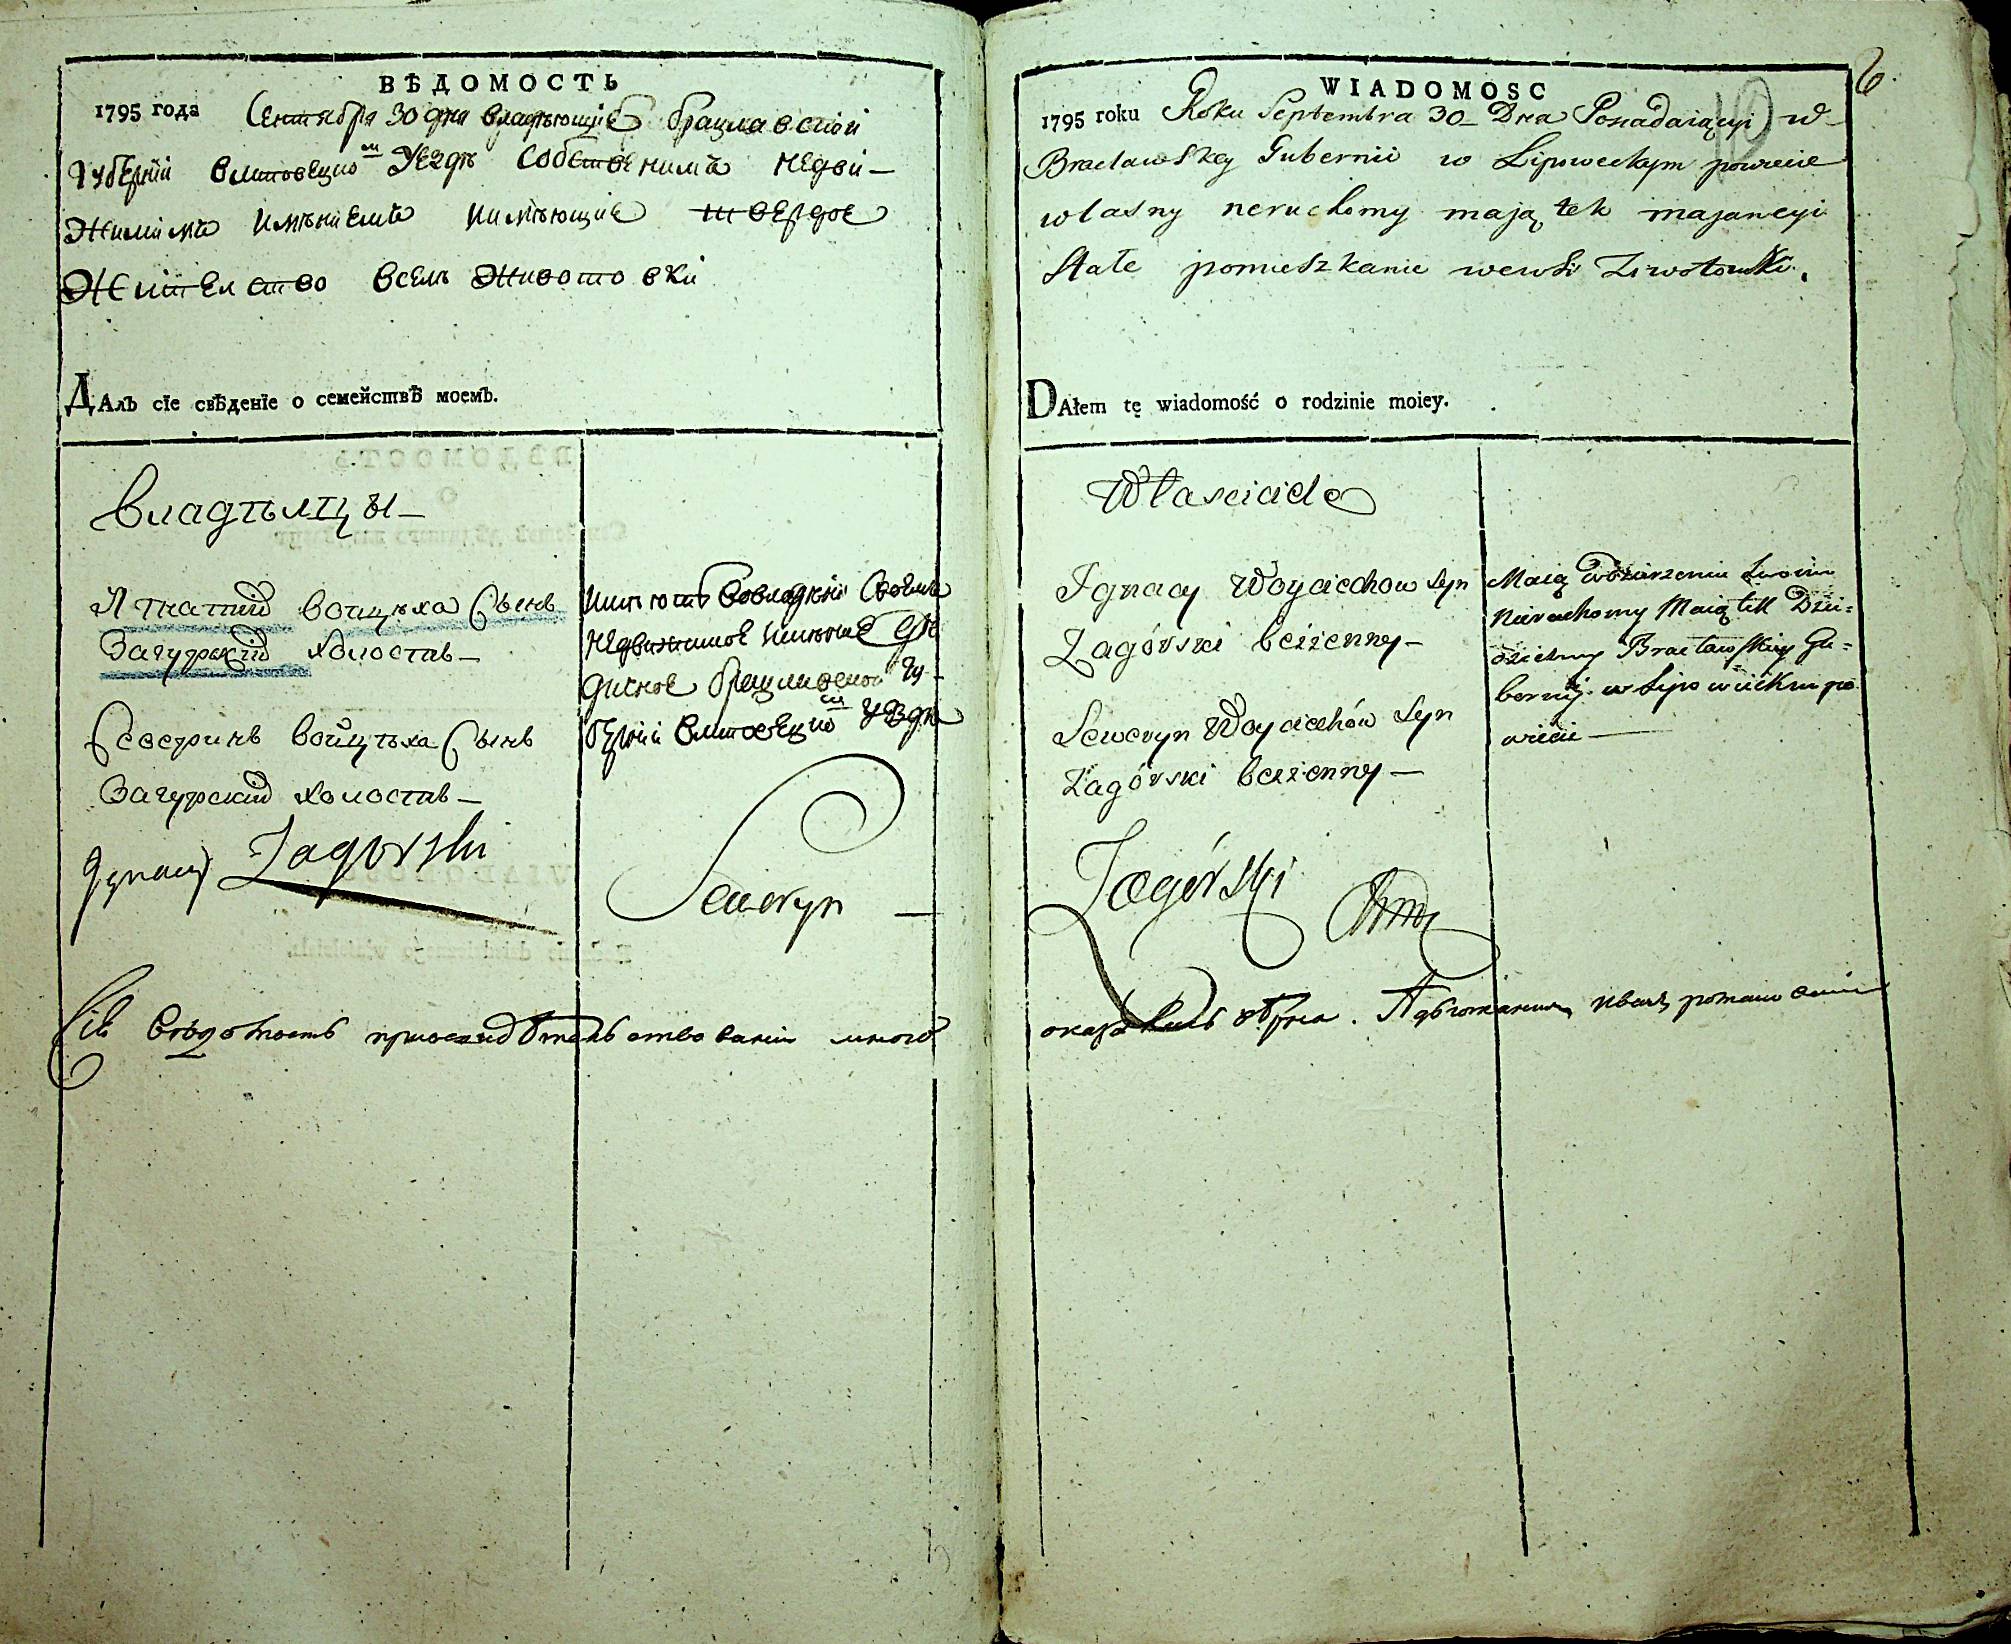 ВѢДОМОСТЬ
1795 года Сентября 30 дня владѣющие брацлавской
Губернїи влиповецко м Уездѣ собственимъ недви-
жимимъ имѣниемъ имѣющие твердое
жителство вселѣ животовки
ДАлъ сїе свѣденїе о семействѣ моемъ.
владѣлцы-
Игнатий войцѣха сынъ
Загурский холостъ-
войцѣха сынъ
Загурский холостъ-
имѣютъ
недвижимое имение дѣ
дисное брацлавской Гу-
бернїи влиповецко м Уездѣ
Jgnacy Zagorski
Seweryn -
Сїя вѣдомость
WIADOMOSC
6.
10
1795 roku Roku Septembra 30- Dnia Posiadaiącyi w-
Bracławskey Gubernii w Lipoweckym powiecie
własny neruchomy mają tek majancyi
Stałe pomieszkanie wewsi Ziwotowki.
DAłem tę wiadomość o rodzinie moiey.
Własciciele
Jgnacy Woyciechow Syn
Zagórski bezżenny-
Seweryn Woyciechów Syn
Zagórski bezżenny-
Maią swoim
Nieruchomy Maiątek Dzie=
dziczny Bracławskiey Gu=
bernij w Lipowieckim po
wiecie-
Zagórski